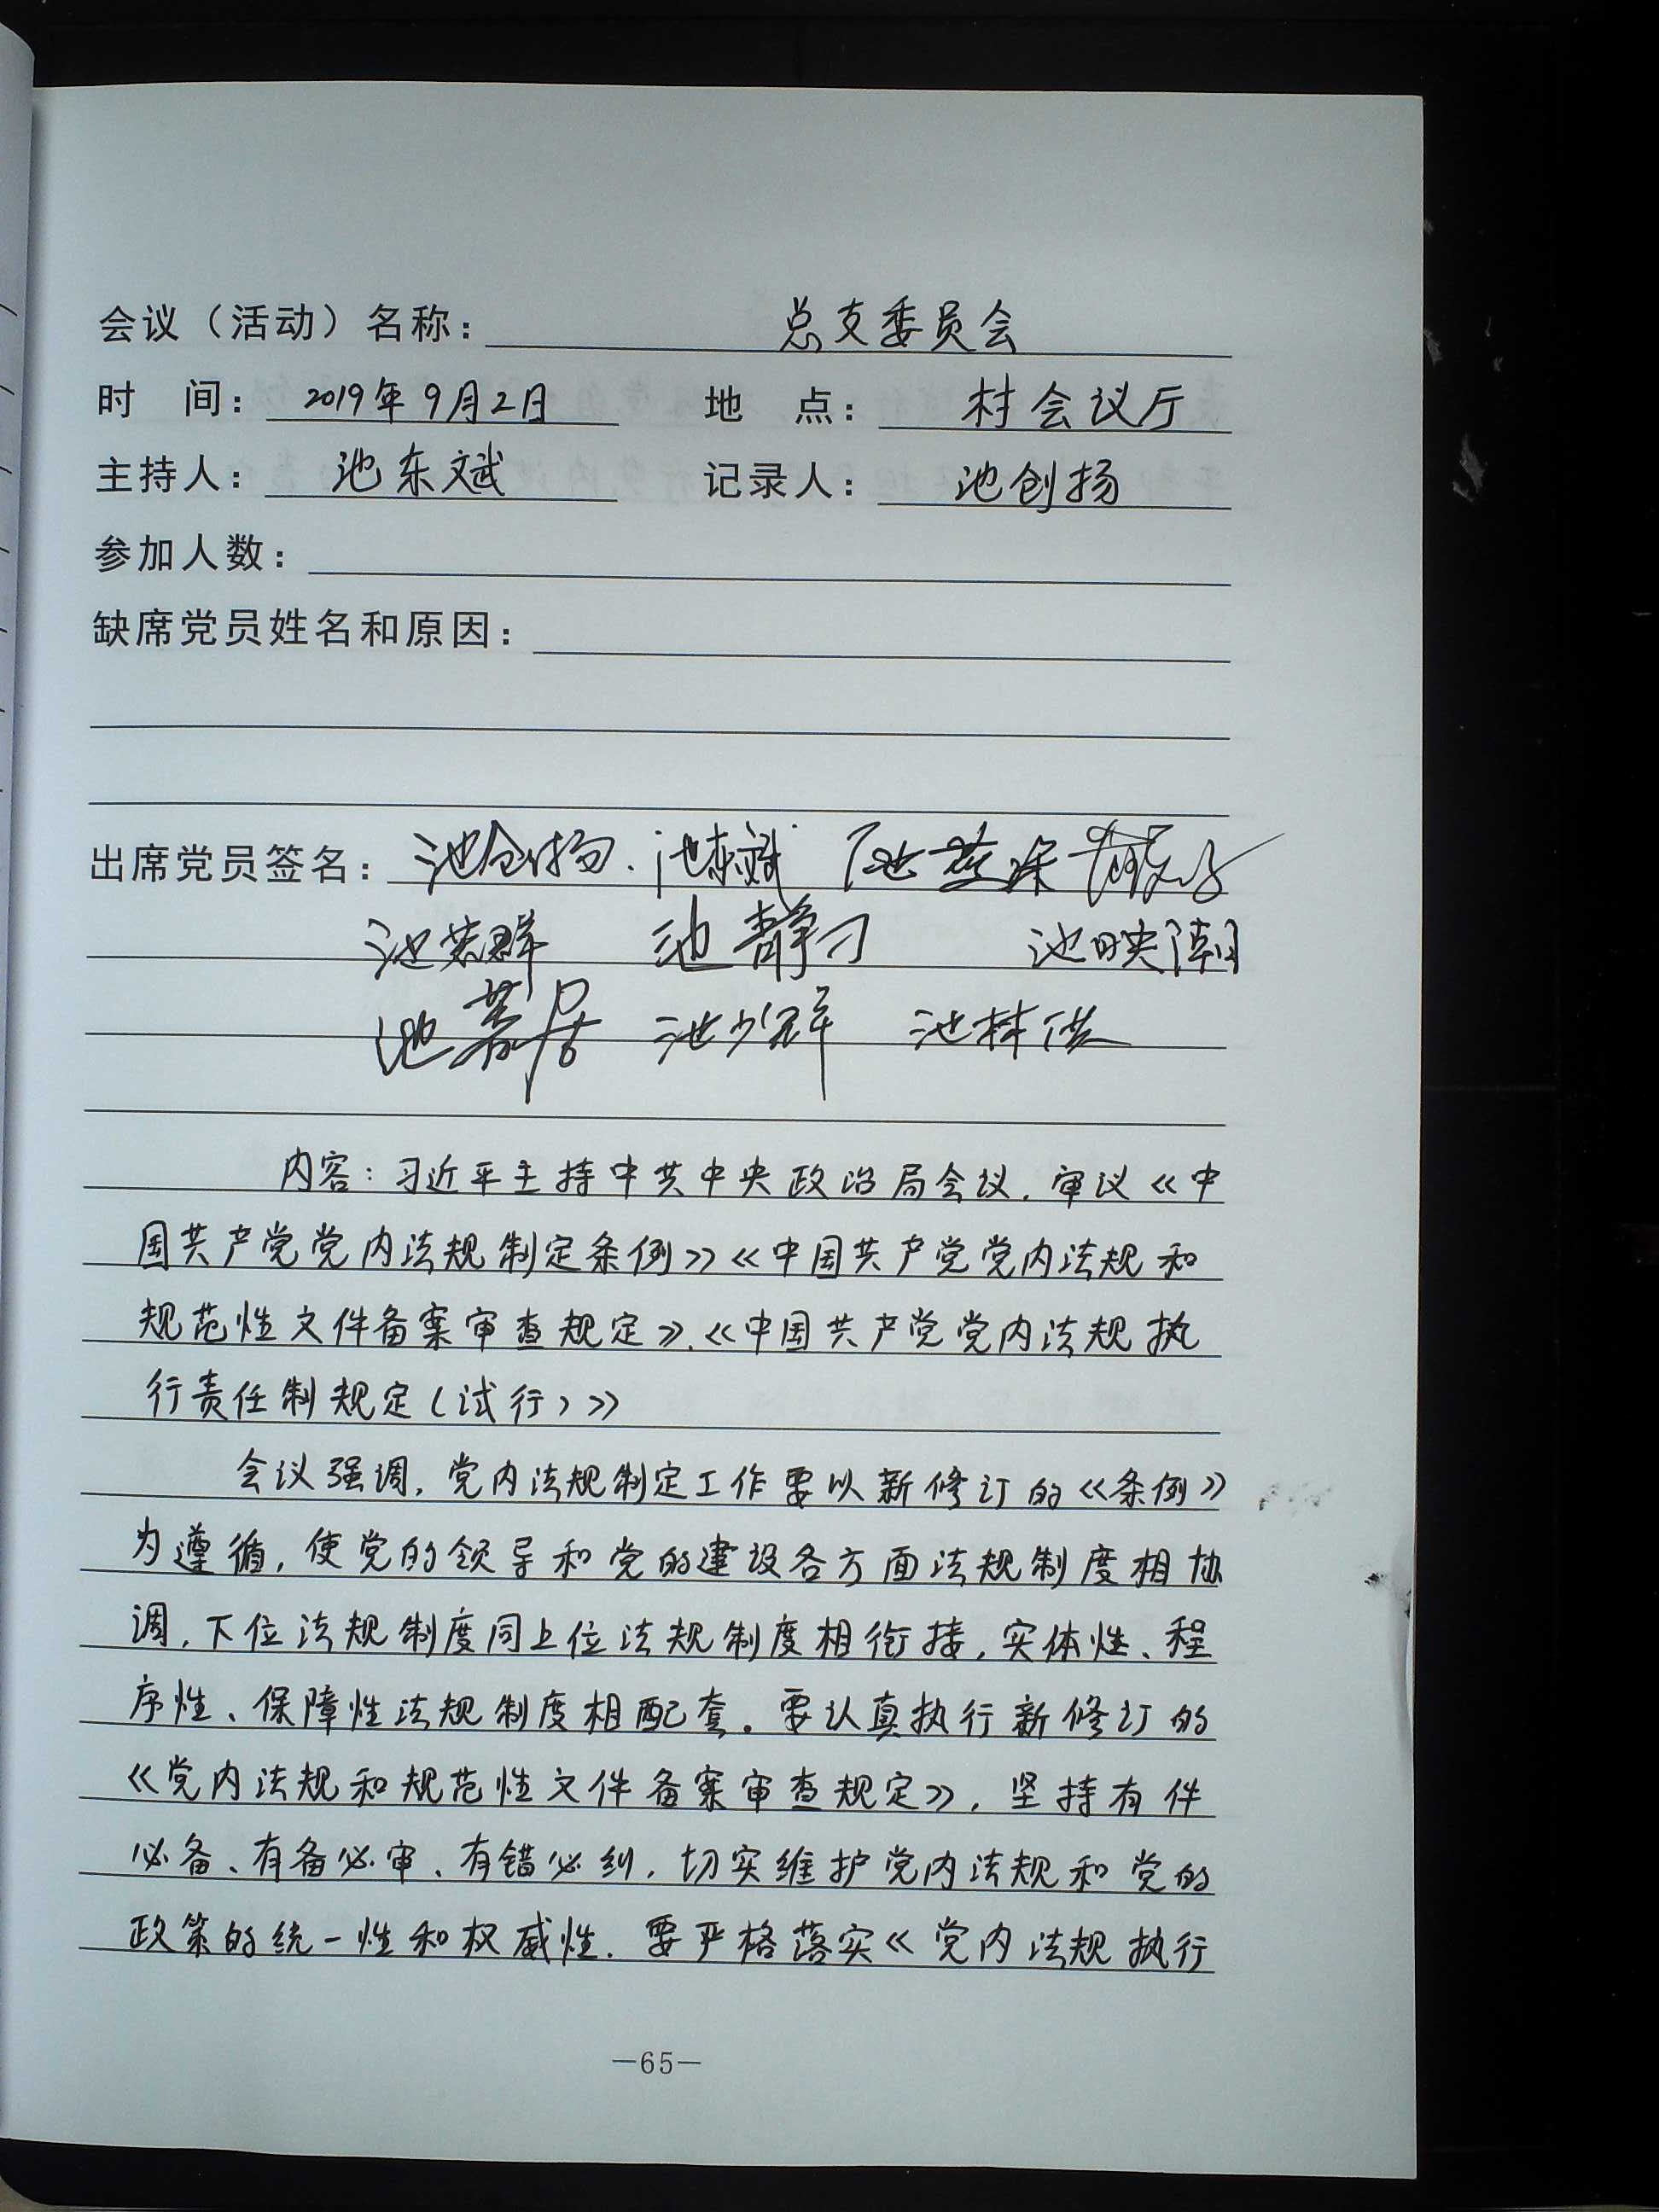 会议（活动）名称：总支委员会
时 间：2019年9月2日 地 点：村会议厅
主持人：池东斌 记录人：池创扬
参加人数：
缺席党员姓名和原因：
出席党员签名：池创扬.池东斌 池
池 群 池静 池映潮
池 居 池少群 池林
内容：习近平主持中共中央政治局会议，审议《中
国共产党党内法规制定条例》《中国共产党党内法规和
规范性文件备案审查规定》、《中国共产党党内法规执
行责任制规定(试行)》
会议强调，党内法规制定工作要以新修订的《条例》
为遵循，使党的领导和党的建设各方面法规制度相协
调，下位法规制度同上位法规制度相衔接，实体性、程
序性、保障性法规制度相配套。要认真执行新修订的
《党内法规和规范性文件备案审查规定》，坚持有件
必备、有备必审、有错必纠，切实维护党内法规和党的
政策的统一性和权威性．要严格落实《党内法规执行
—65—